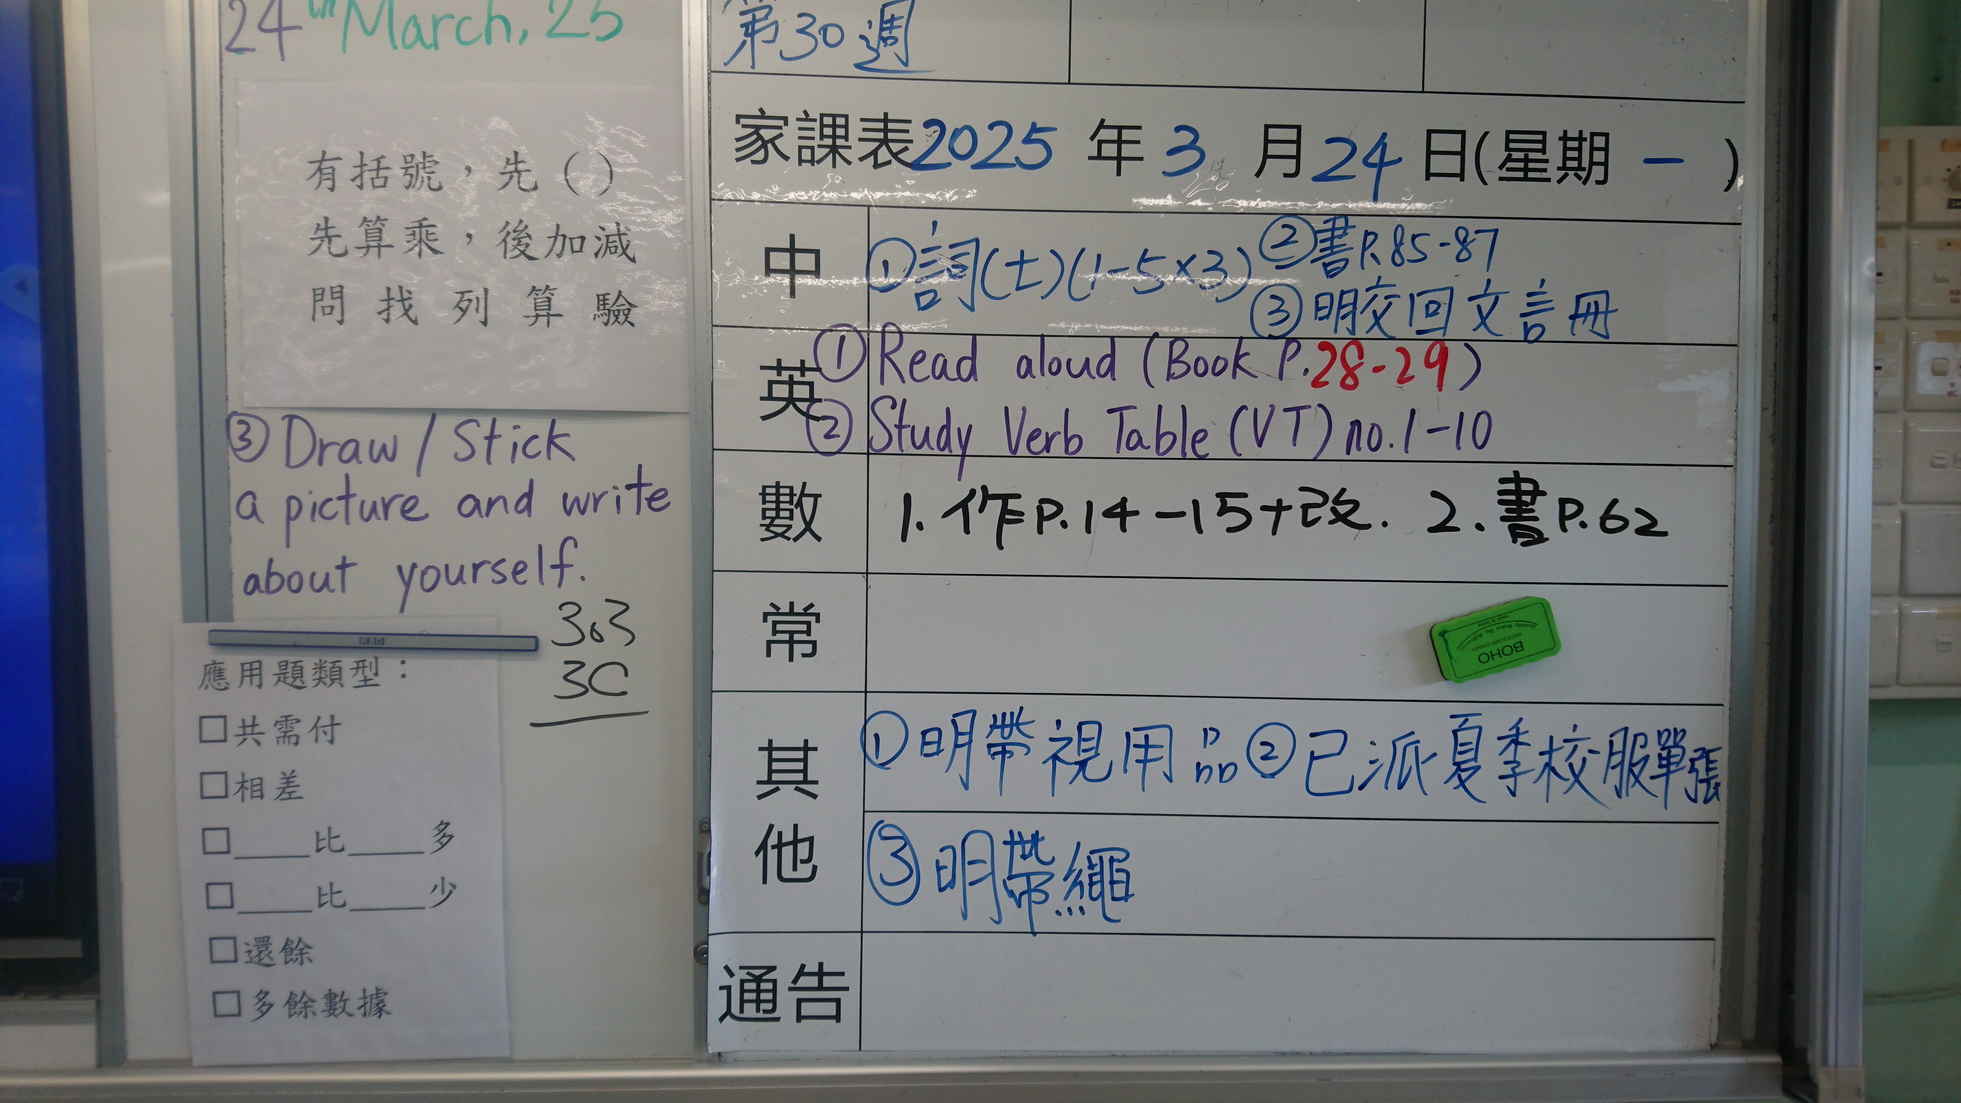 24th March, 25
有括號，先（）
先算乘，後加減
問找列算驗
③ Draw / Stick
a picture and write
about yourself.
303
3C
應用題類型：
□共需付
□相差
□____比____多
□____比____少
□還餘
□多餘數據
第30週
家課表2025年3月24日(星期一)
中
①詞(七)(1-5×3) ②書P.85-87
③明交回文言冊
英
① Read aloud (Book P.28-29)
② Study Verb Table (VT) no.1-10
數
1.作P.14-15+改. 2.書P.62
常
BOHO
其他
①明帶視用品 ②已派夏季校服單張
③明帶繩
通告